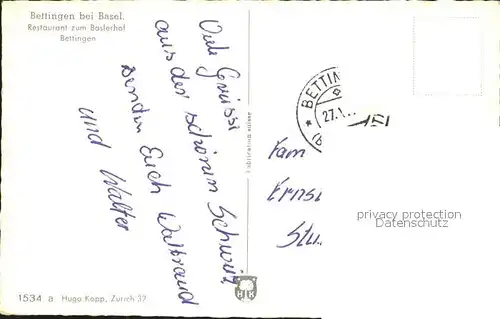 Bettingen bei Basel.
Restaurant zum Baslerhof
Bettingen
Viele Grüssi
aus der schönen Schweiz
senden Euch Waltraud
und Walter
Fabrication suisse
BETTIN
27.1
Fam
Ernst
Stu
privacy protection
Datenschutz
1534 a Hugo Kopp, Zürich 37
H K